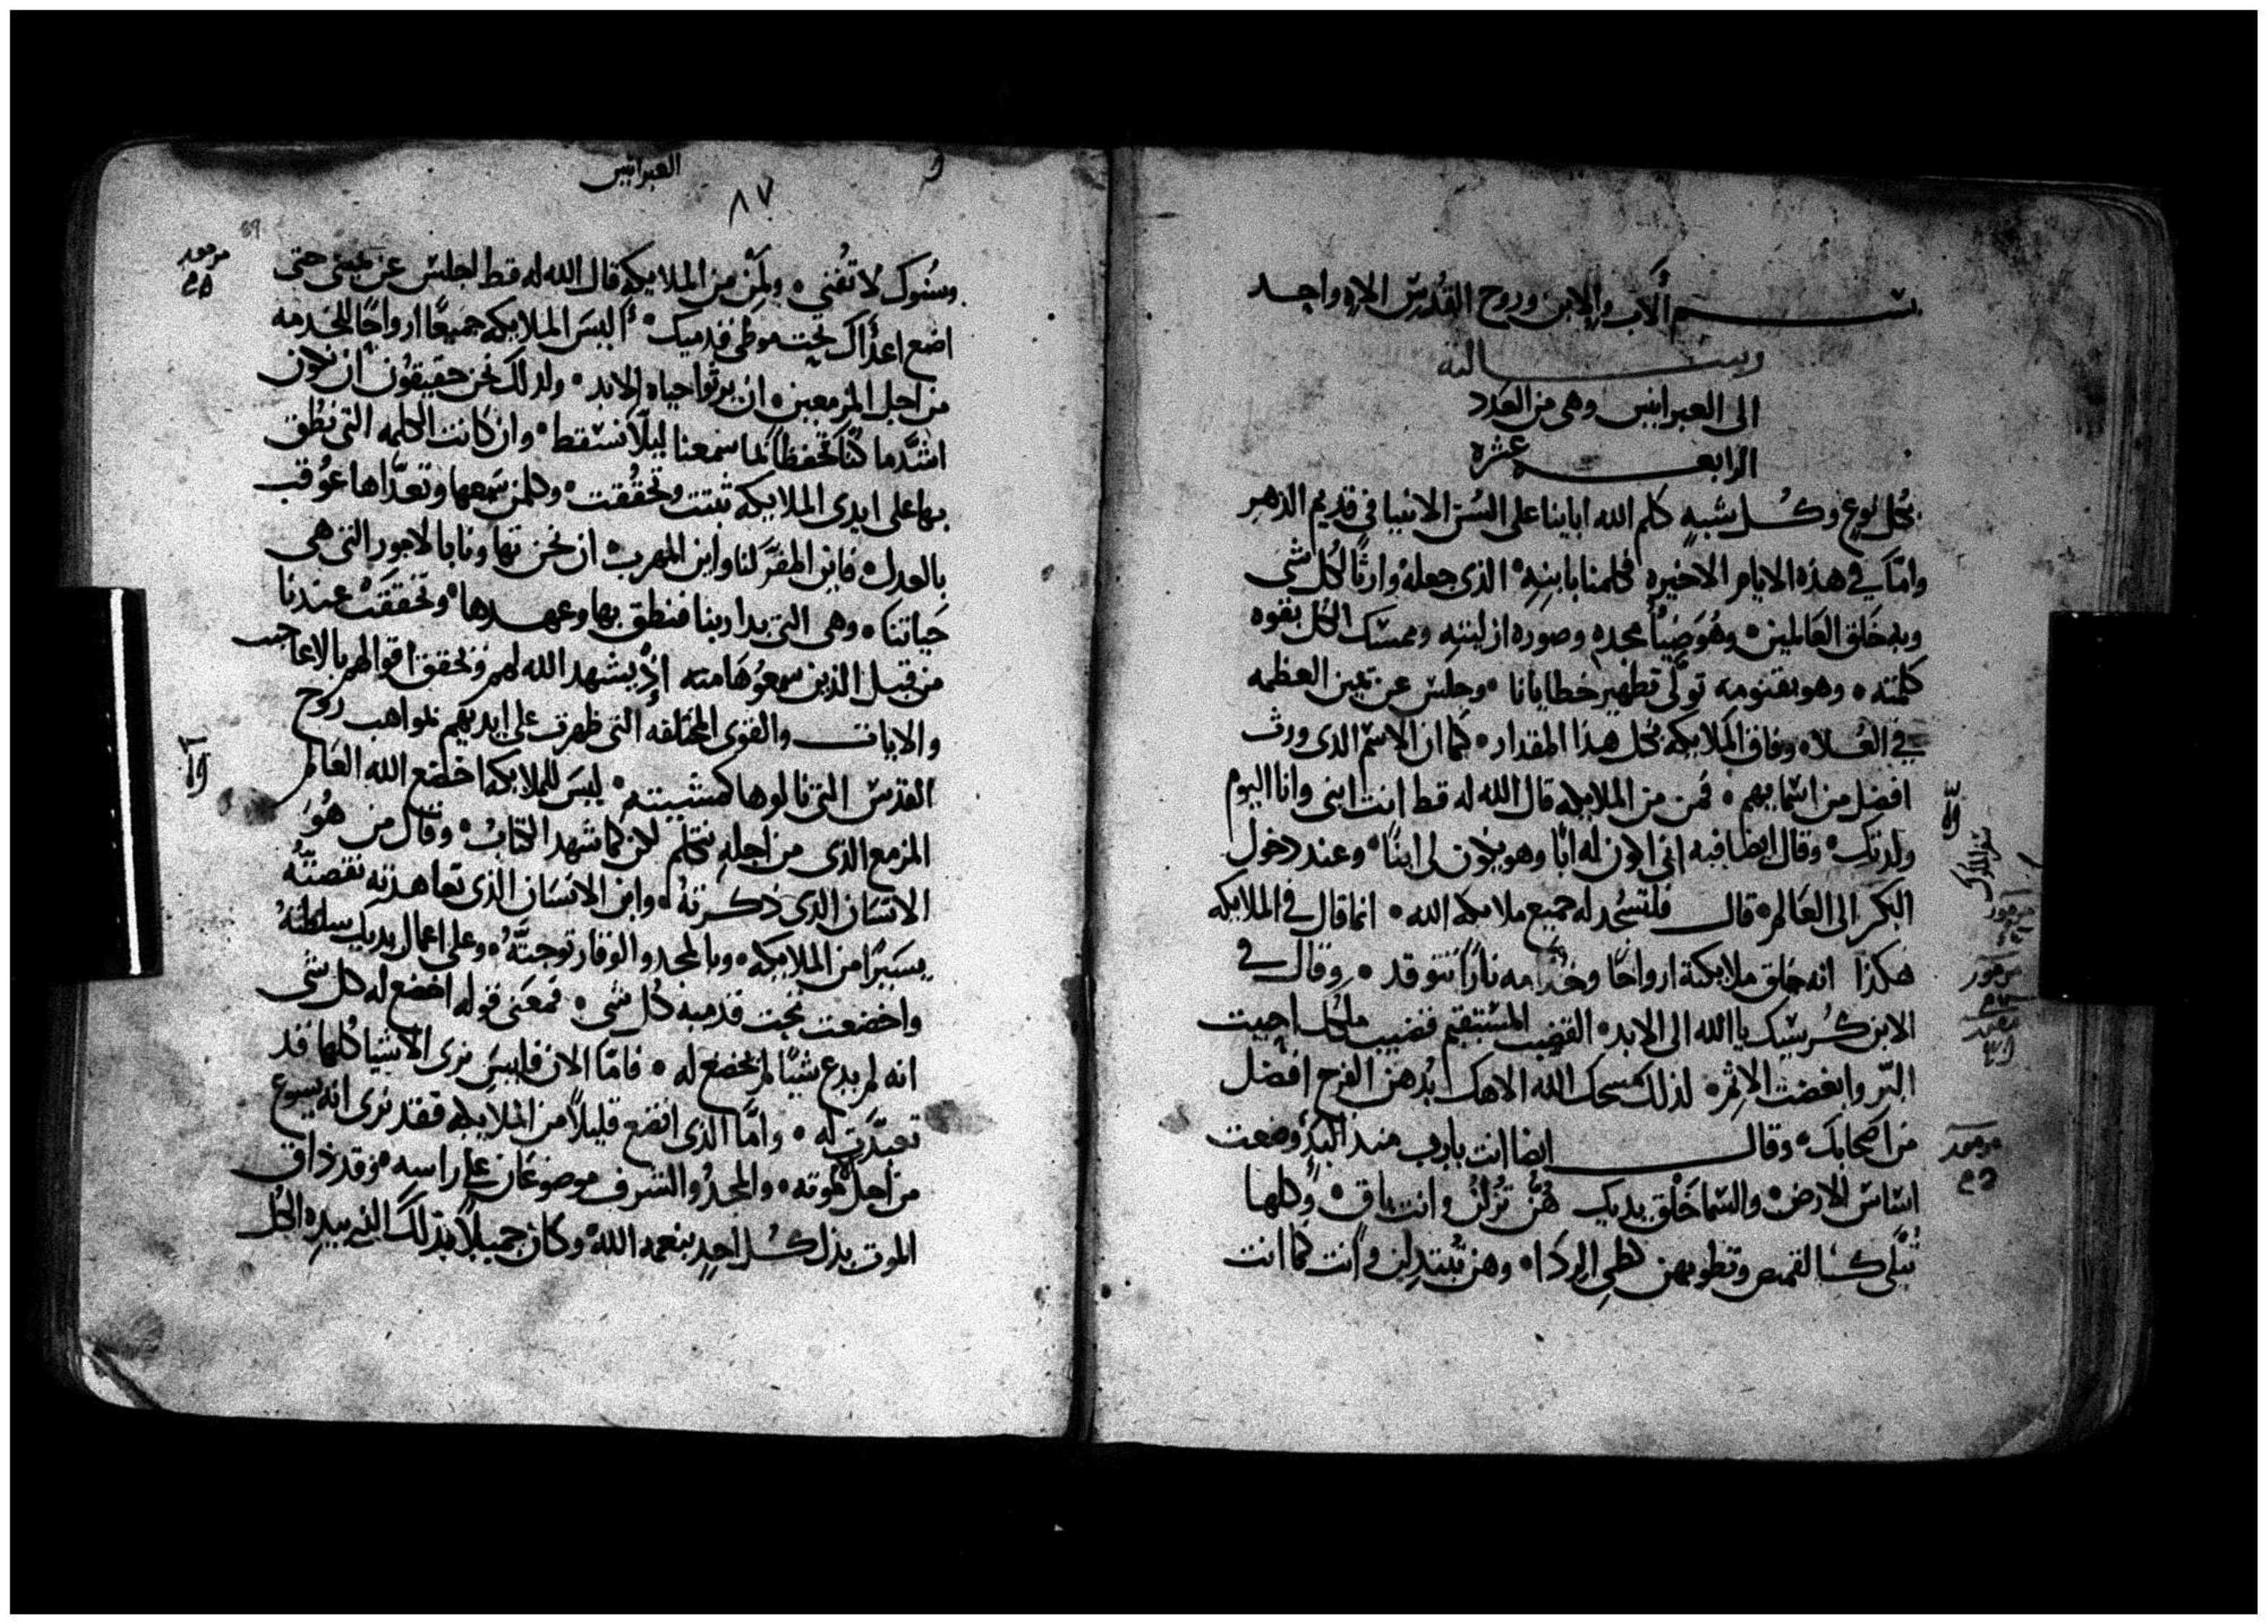 بسم الاب والابن وروح القدس الاه واحد
رسالته
الى العبرانيين وهى من العدد
الرابعه عشره
بكل نوع وكل شبه كلم الله ابايناعلى السن الانبيا فى قديم الدهر
وامّا في هذه الايام الاخيره فكلمنا بابنه الذى جعله وارثًا لكل شى
وبه خلق العالمين وهو ضيا مجده وصوره ازليته وممسك الكل بقوه
كلمته وهو بقنومه تولى تطهير خطايانا وجلس عن يمين العظمه
في العلاء وفاق الملايكه بكل هذا المقدار كما ان الاسم الذى ورث
افضل من اسمايهم فمن من الملايكه قال الله له قط انت ابنى وانا اليوم
ولدتك وقال ايضا فيه انى اكون له ابًا وهو يكون لى ابنًا وعند دخول
البكر الى العالم قال فلتسجد له جميع ملايكه الله انما قال فى الملايكه
هكذا انه خلق ملايكته ارواحًا وخدامه نارًا تتوقد وقال في
الابن كرسيك يا الله الى الابد القضيب المستقيم قضيب ملكك احببت
البر وابغضت الاثم لذلك مسحك الله الاهك بدهن الفرح افضل
من اصحابك وقال ايضا انت يارب منذ البدء وضعت
اساس الارض والسما خلق يديك هن تزلن وانت باق وكلها
تبلى كالقميص وتطويهن كطى الردا وهن يتبدلن وانت كما انت
العبرانيين
٨٧
وسنوك لا تفنى ولمن من الملايكه قال الله له قط اجلس عن يمينى حتى
اضع اعداك تحت موطى قدميك اليس الملايكه جميعًا ارواحًا للخدمه
من اجل المزمعين ان يرثوا حياه الابد ولذلك نحن حقيقون ان نكون
اشد ما كنا تحفظًا لما سمعنا ليلا نسقط وان كانت الكلمه التى نطق
بها على ايدى الملايكه ثبتت وتحققت وكلمن سمعها وتعداها عوقب
بالعدل فاين المفر لنا واين المهرب ان نحن تهاونا بالامور التى هى
حياتنا وهى التى بدا ربنا فنطق بها وعهدها وتحققت عندنا
من قبل الذين سمعوها منه اذ يشهد الله لهم وتحقق اقوالهم بالاعاجيب
والايات والقوى المختلفه التى ظهرت على ايديهم بمواهب روح
القدس التى نالوها كمشيته ليس للملايكه اخضع الله العالم
المزمع الذى من اجله نتكلم لكن كما شهد الكتاب وقال من هو
الانسان الذى ذكرته وابن الانسان الذى تعاهدته نقصته
يسيرًا من الملايكه وبالمجد والوقار توجته وعلى اعمال يديك سلطته
واخضعت تحت قدميه كل شى فمعنى قوله اخضع له كل شى
انه لم يدع شيًا لم يخضع له فامّا الان فليس نرى الاشيا كلها قد
تعبدت له وامّا الذى اتضع قليلاً من الملايكه فقد نرى انه يسوع
من اجل موته والمجد والشرف موضوعان على راسه وقد ذاق
الموت بدل كل احد بنعمه الله وكان جميلاً بذلك الذى بيده الكل